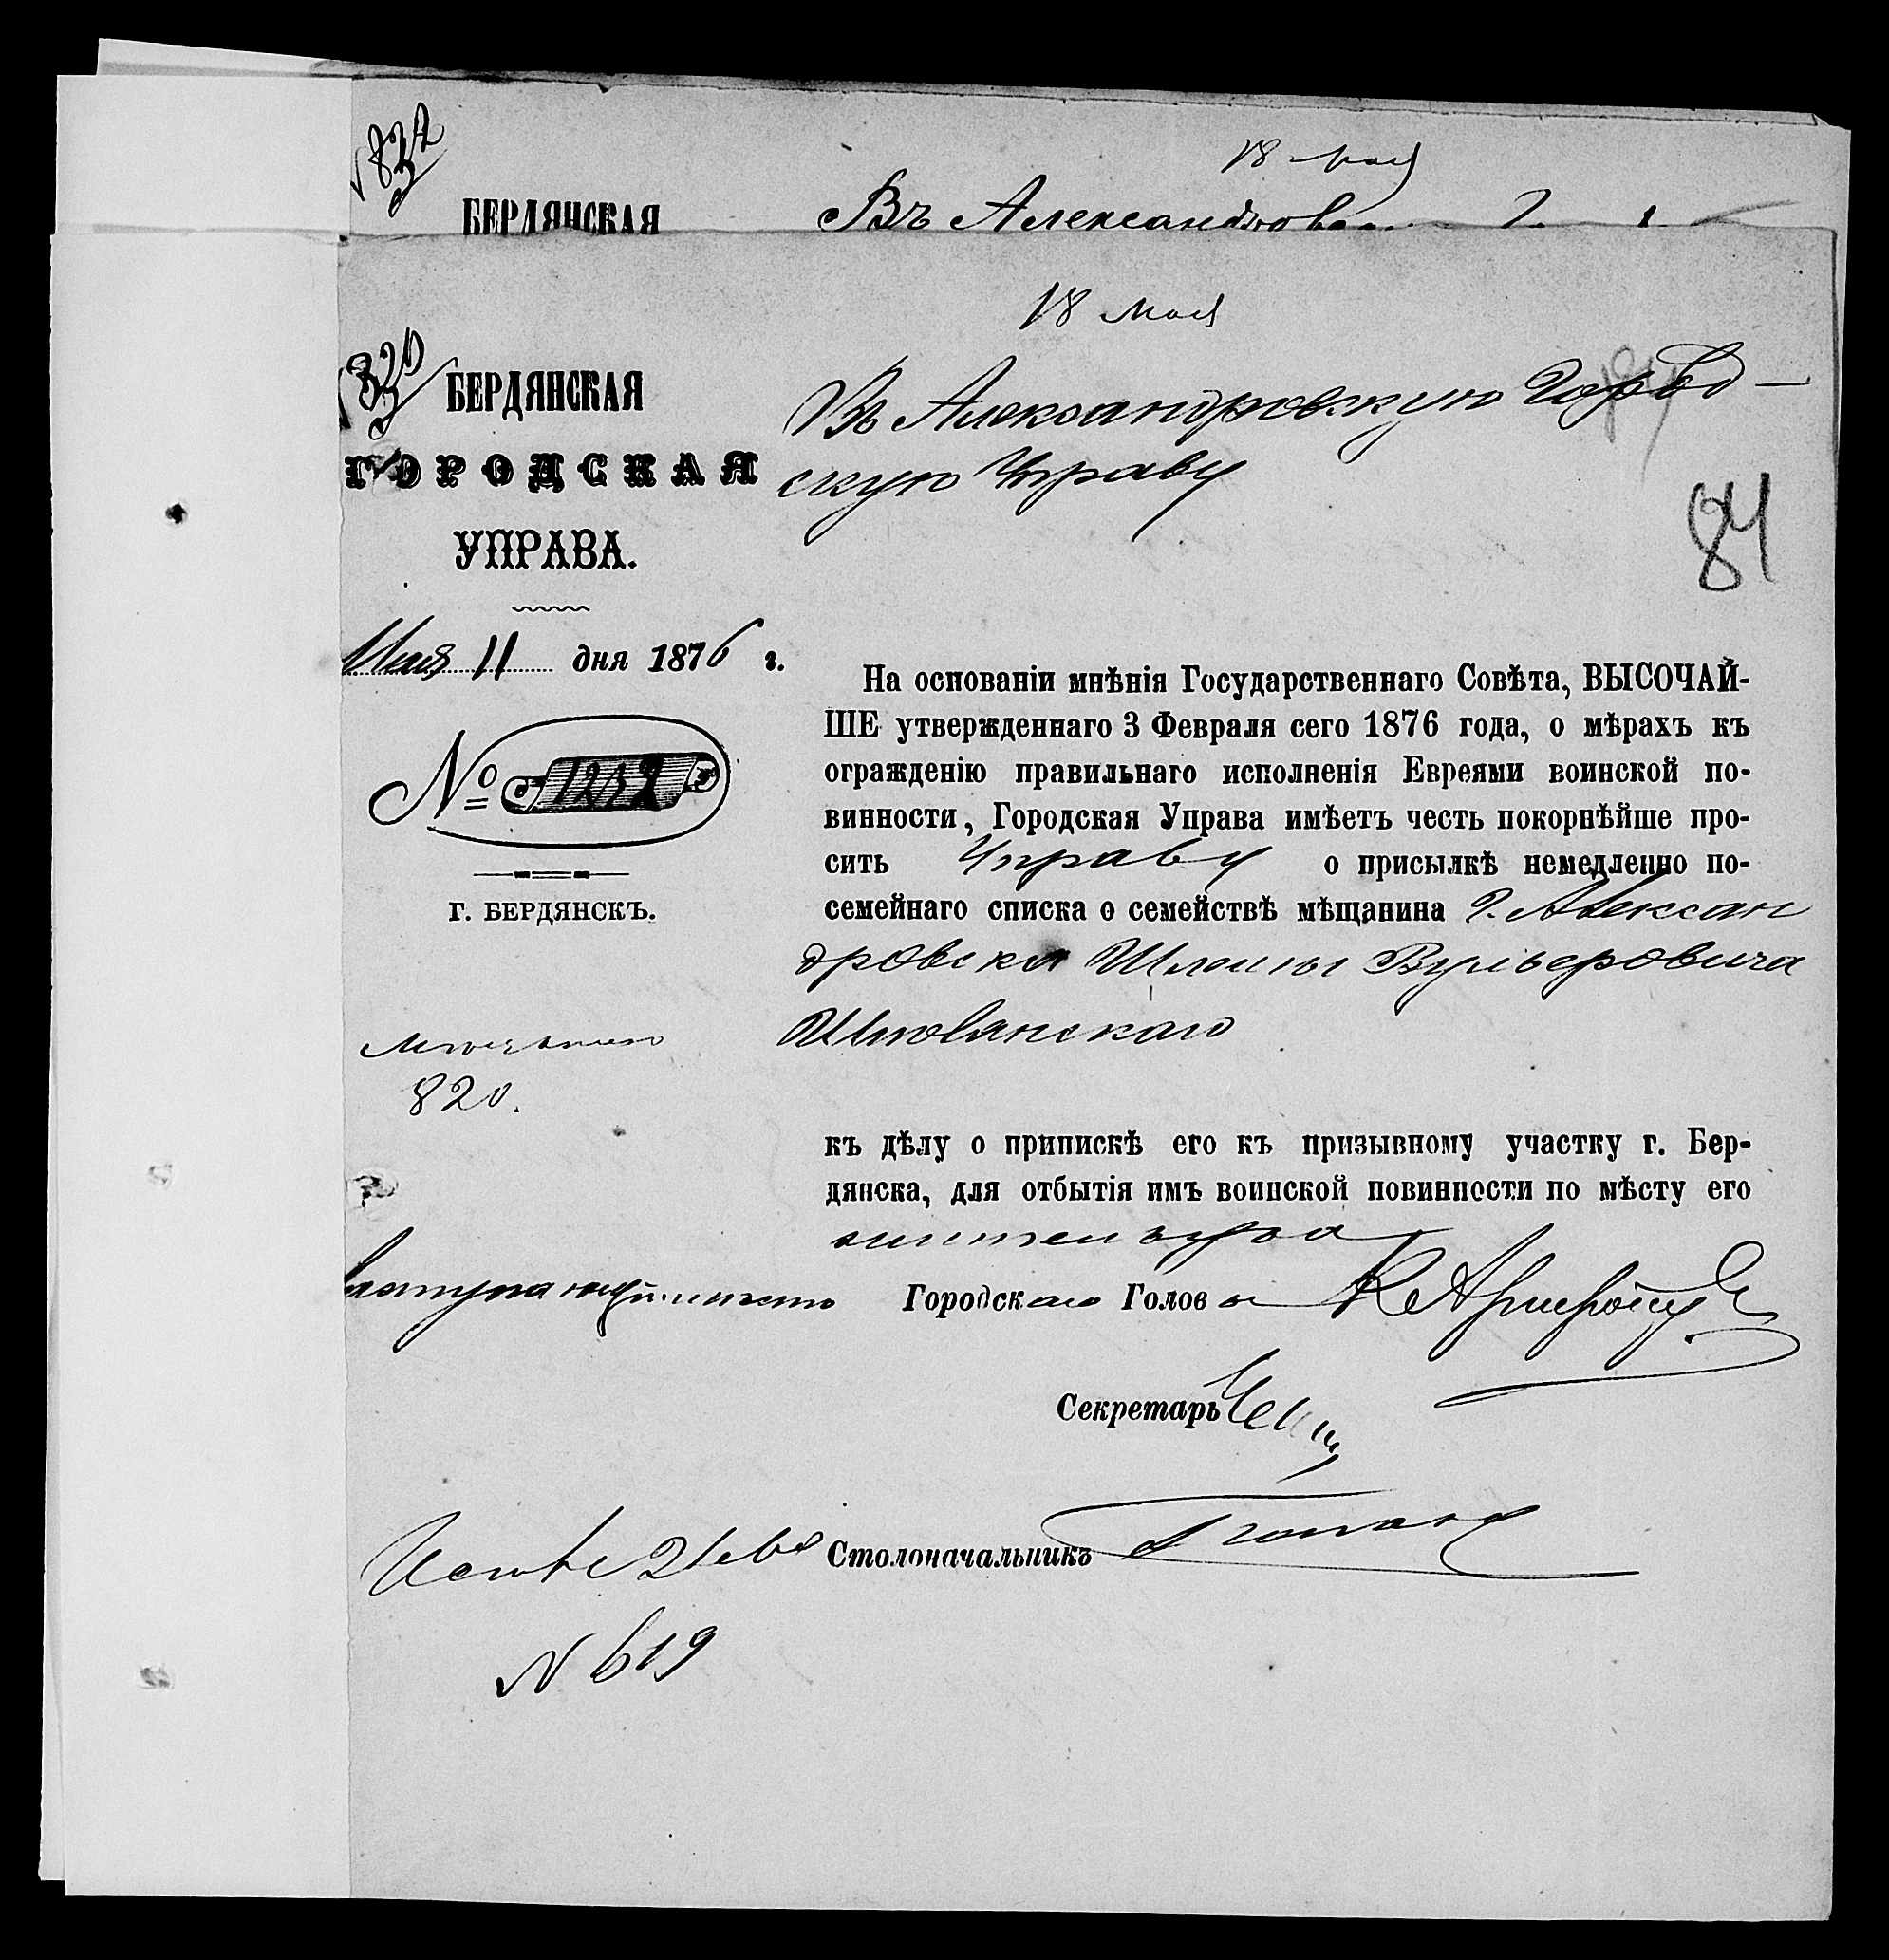 832
18 мая
БЕРДЯНСКАЯ
Въ Александров
18 мая
820
БЕРДЯНСКАЯ
Въ Александровскую Город-
ГОРОДСКАЯ
скую Управу
УПРАВА.
84
Мая 11 дня 1876 г.
На основаніи мнѣнія Государственнаго Совѣта, ВЫСОЧАЙ-
ШЕ утвержденнаго 3 Февраля сего 1876 года, о мѣрахъ къ
огражденію правильнаго исполненія Евреями воинской по-
№ 1212
винности, Городская Управа имѣетъ честь покорнѣйше про-
сить Управу о присылкѣ немедленно по-
г. БЕРДЯНСКЪ.
семейнаго списка о семействѣ мѣщанина г. Алексан
дровска Шлемы Вульфовича
820.
къ дѣлу о припискѣ его къ призывному участку г. Бер-
дянска, для отбытія имъ воинской повинности по мѣсту его
жительства
Городскаго Головы
Секретарь
Столоначальникъ
N 619